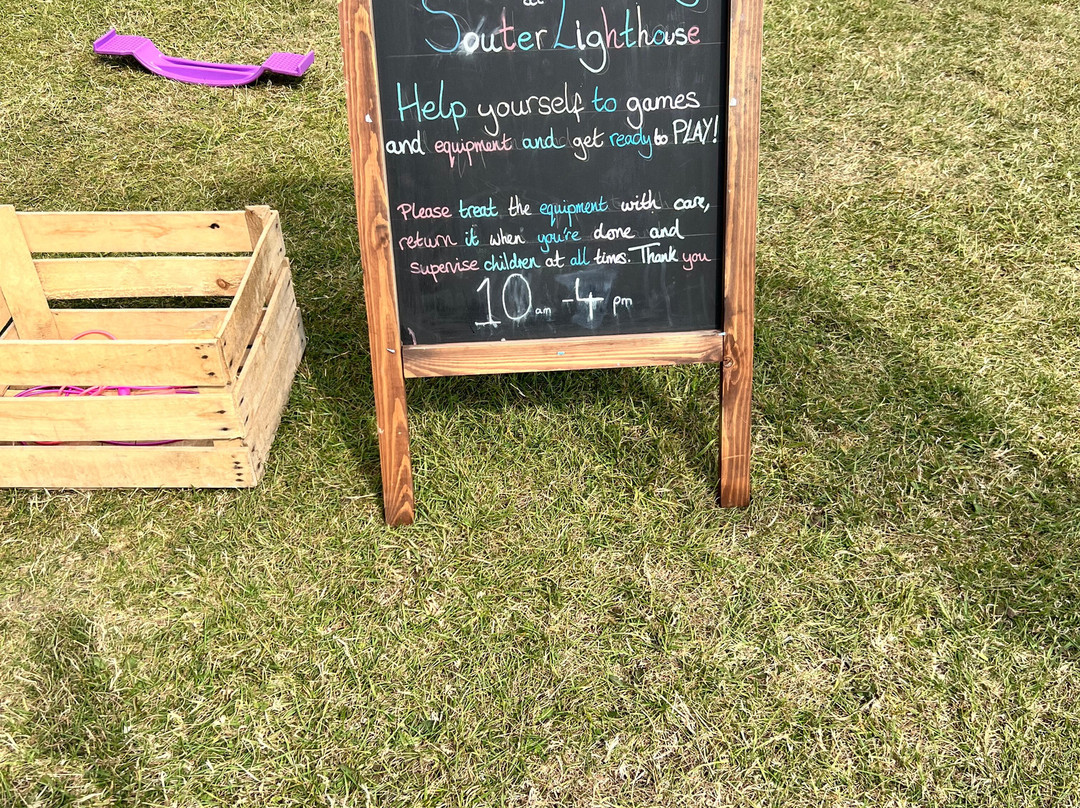 at
Souter Lighthouse
Help yourself to games
and equipment and get ready to PLAY!
Please treat the equipment with care,
return it when you're done and
supervise children at all times. Thank you
10am - 4pm